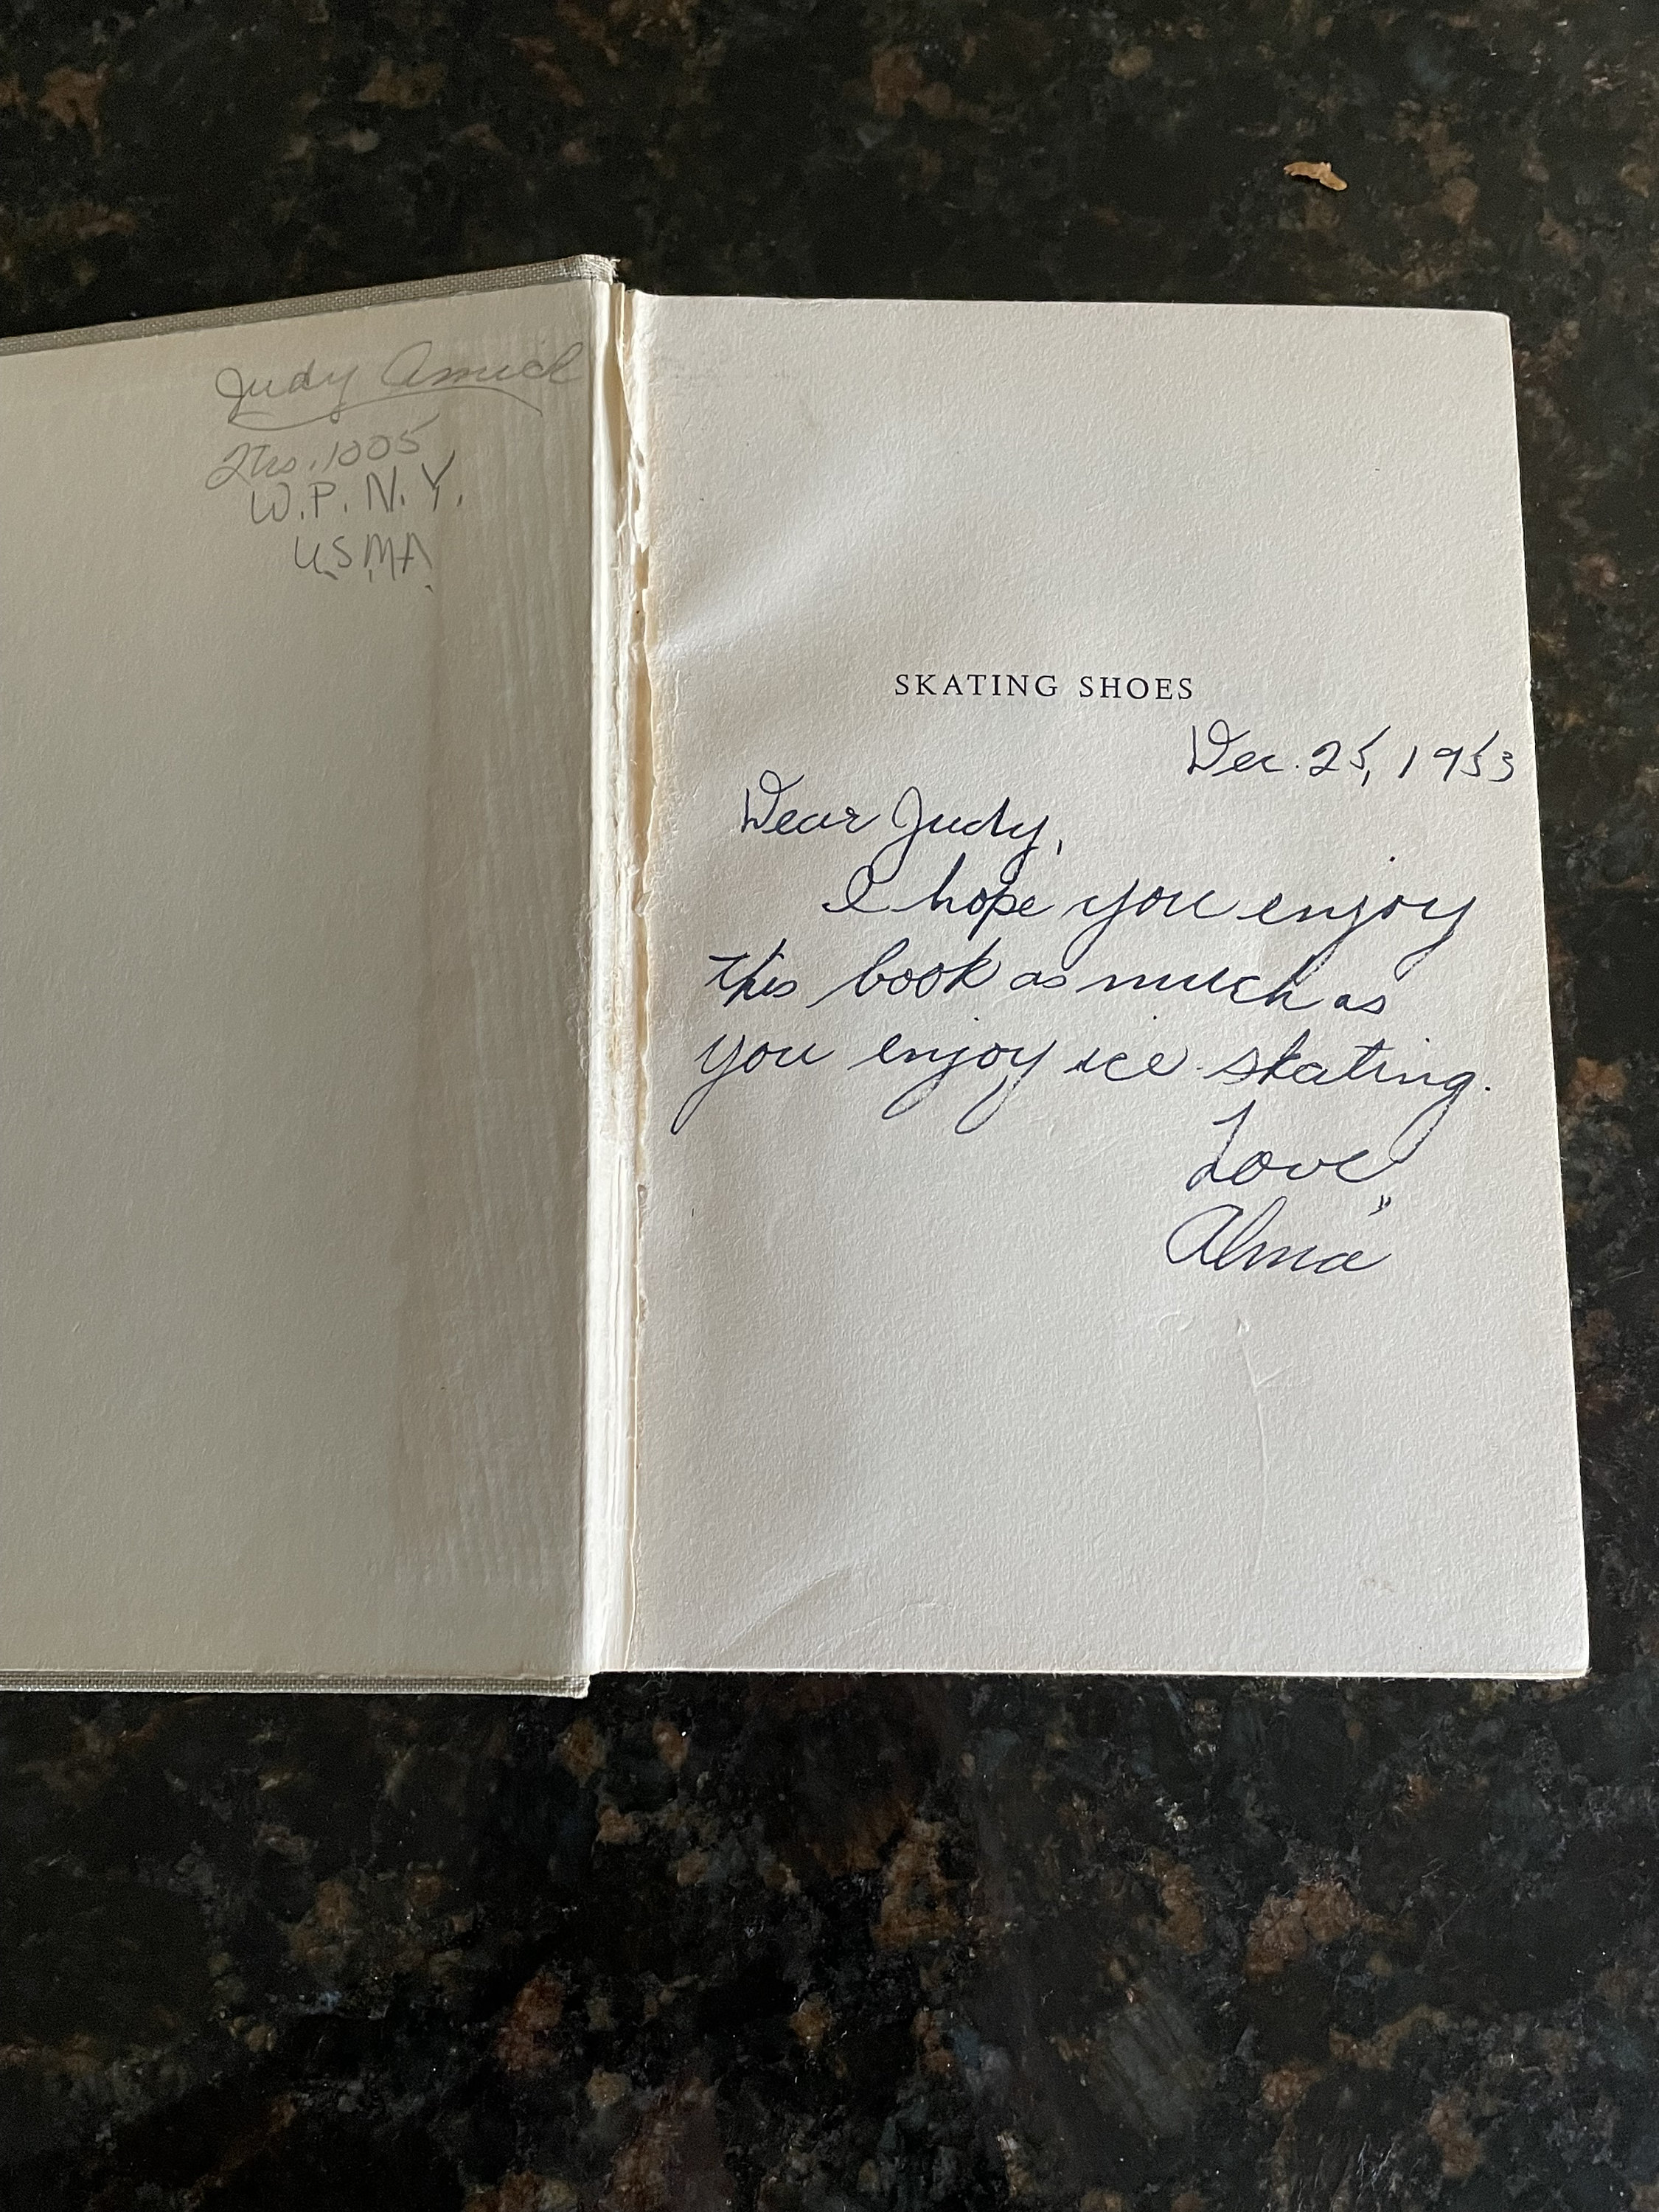 Judy Amick
2trs. 1005
W.P. N.Y.
U.S.M.A.
SKATING SHOES
Dec. 25, 1953
Dear Judy,
I hope you enjoy
this book as much as
you enjoy ice skating.
Love,
Alma